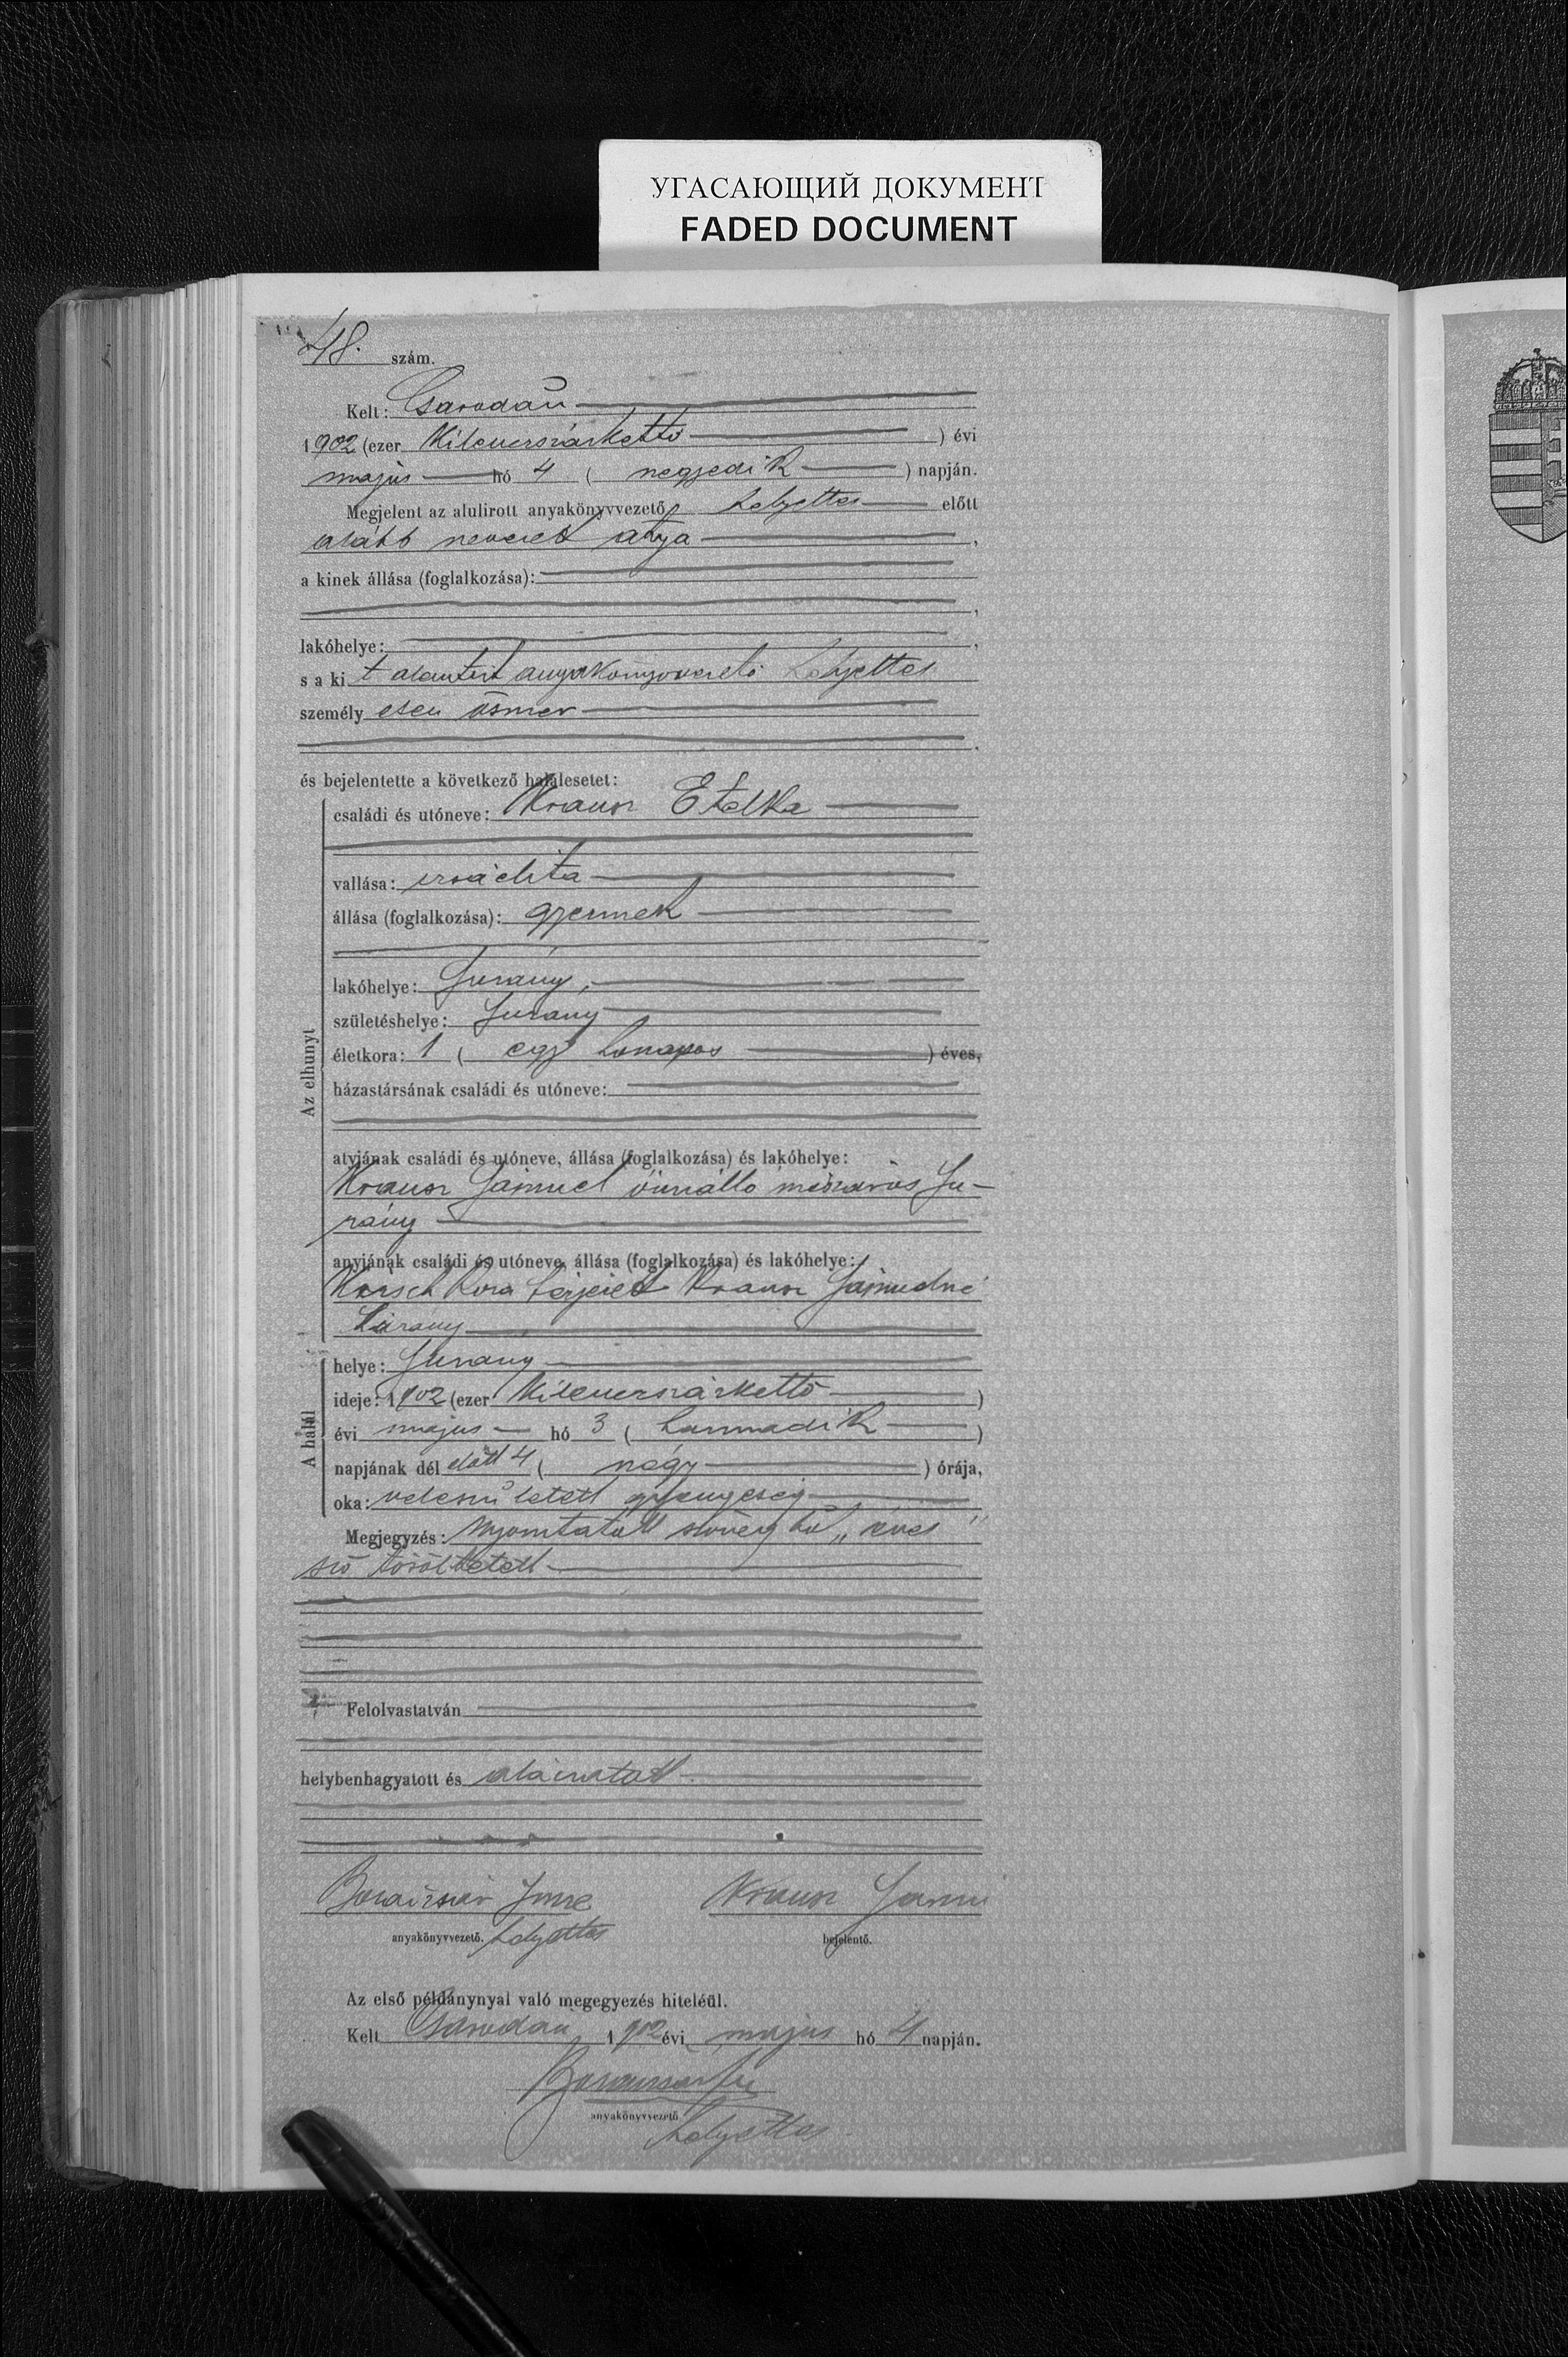 УГАСАЮЩИЙ ДОКУМЕНТ
FADED DOCUMENT
48. szám.
Kelt: Csarodán
1902 (ezer kilencszázkettő) évi
május hó 4 (negyedik) napján.
Megjelent az alulirott anyakönyvvezető helyettes előtt
alább nevezett atya,
a kinek állása (foglalkozása):
lakóhelye:
s a kit alantirt anyakönyvvezető helyettes
személyesen ösmer
és bejelentette a következő halálesetet:
Az elhunyt
családi és utóneve: Krausz Etelka
vallása: izráelita
állása (foglalkozása): gyermek
lakóhelye: Surány,
születéshelye: Surány
életkora: 1 (egy honapos) éves,
házastársának családi és utóneve:
atyjának családi és utóneve, állása (foglalkozása) és lakóhelye:
Krausz Sámuel önnálló mészáros Su-
rány
anyjának családi és utóneve, állása (foglalkozása) és lakóhelye:
férjezett Krausz Sámuelné
A halál
helye: Surany
ideje: 1902 (ezer kilencszázkettő)
évi május hó 3 (harmadik)
napjának dél előtt 4 (négy) órája,
oka: veleszületett gyengeség
Megjegyzés: Nyomtatott szöveg bú „éves"
szó töröltetett
Felolvastatván
helybenhagyatott és aláíratott
Imre Krausz Sami
anyakönyvvezető. helyettes bejelentő.
Az első példánynyal való megegyezés hiteléül.
Kelt Csarodán 1902 évi május hó 4 napján.
anyakönyvvezető
helyettes